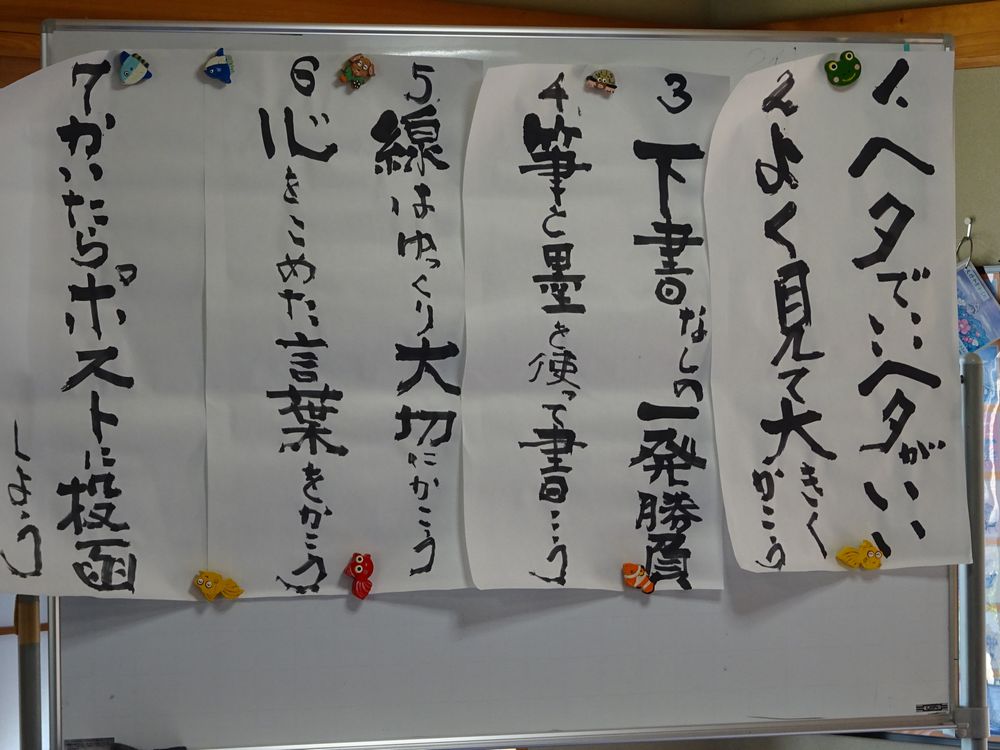 1. ヘタでいいヘタがいい
2. よく見て大きく
かこう
3 下書なしの一発勝負
4. 筆と墨を使って書こう
5. 線はゆっくり大切にかこう
6 心をこめた言葉をかこう
7 かいたらポストに投函
しよう